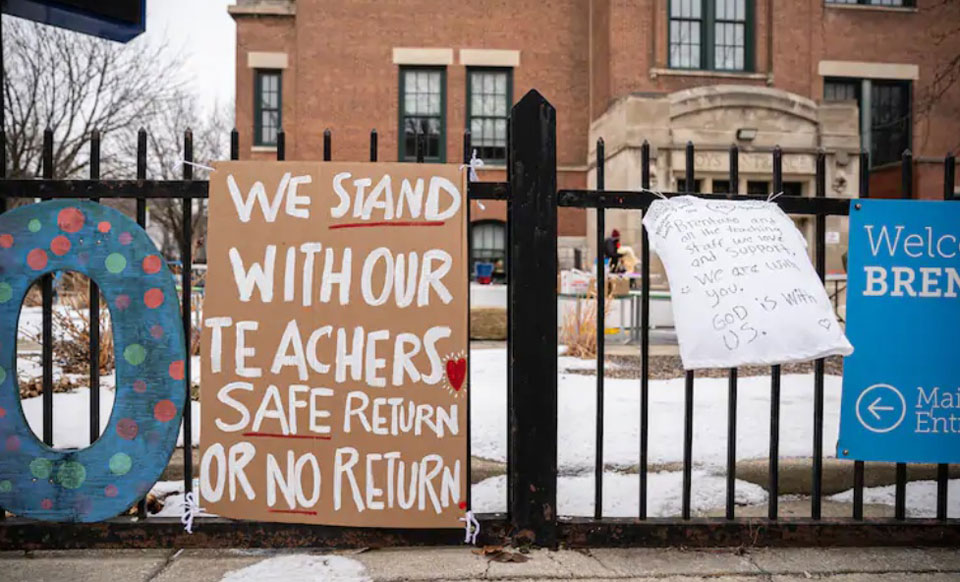 WE STAND
WITH OUR
TEACHERS
SAFE RETURN
OR NO RETURN
Brentano and
all the teaching
staff we love
and support.
We are with
you.
GOD is with
US.
Welc
BREN
Mai
Ent
OYS ENTRANCE